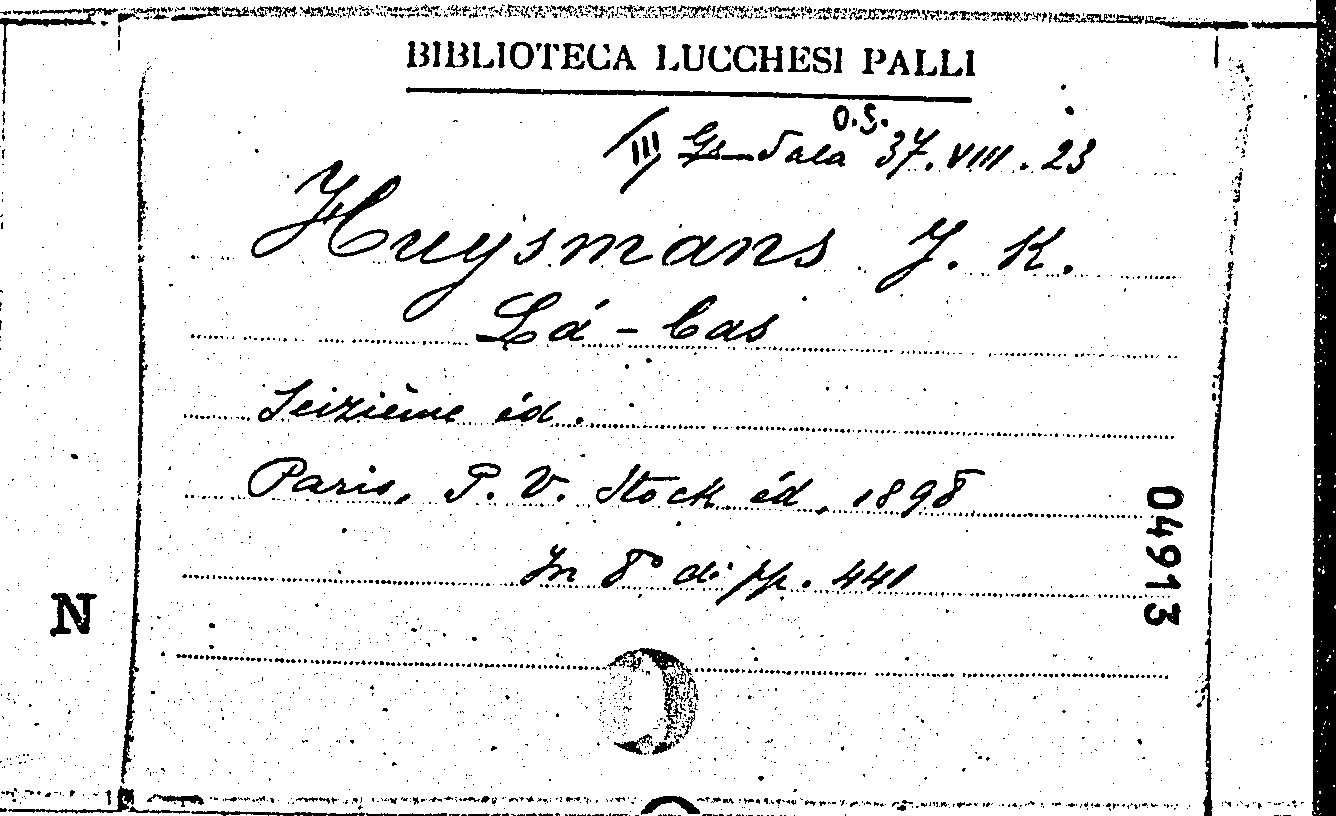 BIBLIOTECA LUCCHESI PALLI
O.S.
III Sala 37.VIII.23
Huysmans J. K.
Lá-bas
Seizième éd.
Paris, P. V. Stock éd, 1898
In 8° di pp. 441
04913
N